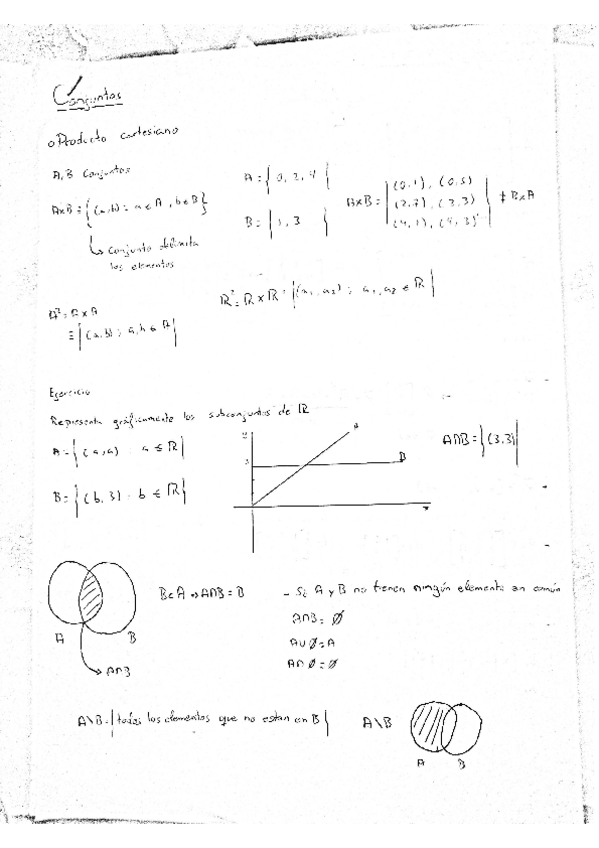 Conjuntos
o Producto cartesiano
A, B Conjuntos
A×B = {(a,b) : a ∈ A, b ∈ B}
↳ Conjunto delimita los elementos
A = {0, 2, 4}
B = {1, 3}
A×B = {(0,1), (0,3)
(2,1), (2,3)
(4,1), (4,3)} ≠ B×A
R² = R × R
≡ {(a,b) : a, b ∈ R}
R² = R × R = {(a₁, a₂) : a₁, a₂ ∈ R}
Ejercicio
Representa gráficamente los subconjuntos de R
A = {(a,a) : a ∈ R}
B = {(b,3) : b ∈ R}
A
B
A∩B = {(3,3)}
A B
A∩B
B⊂A ⇒ A∩B = B
- Si A y B no tienen ningún elemento en común
A∩B = ∅
A∪∅ = A
A∩∅ = ∅
A\B = {todos los elementos que no estan en B}
A\B
A B